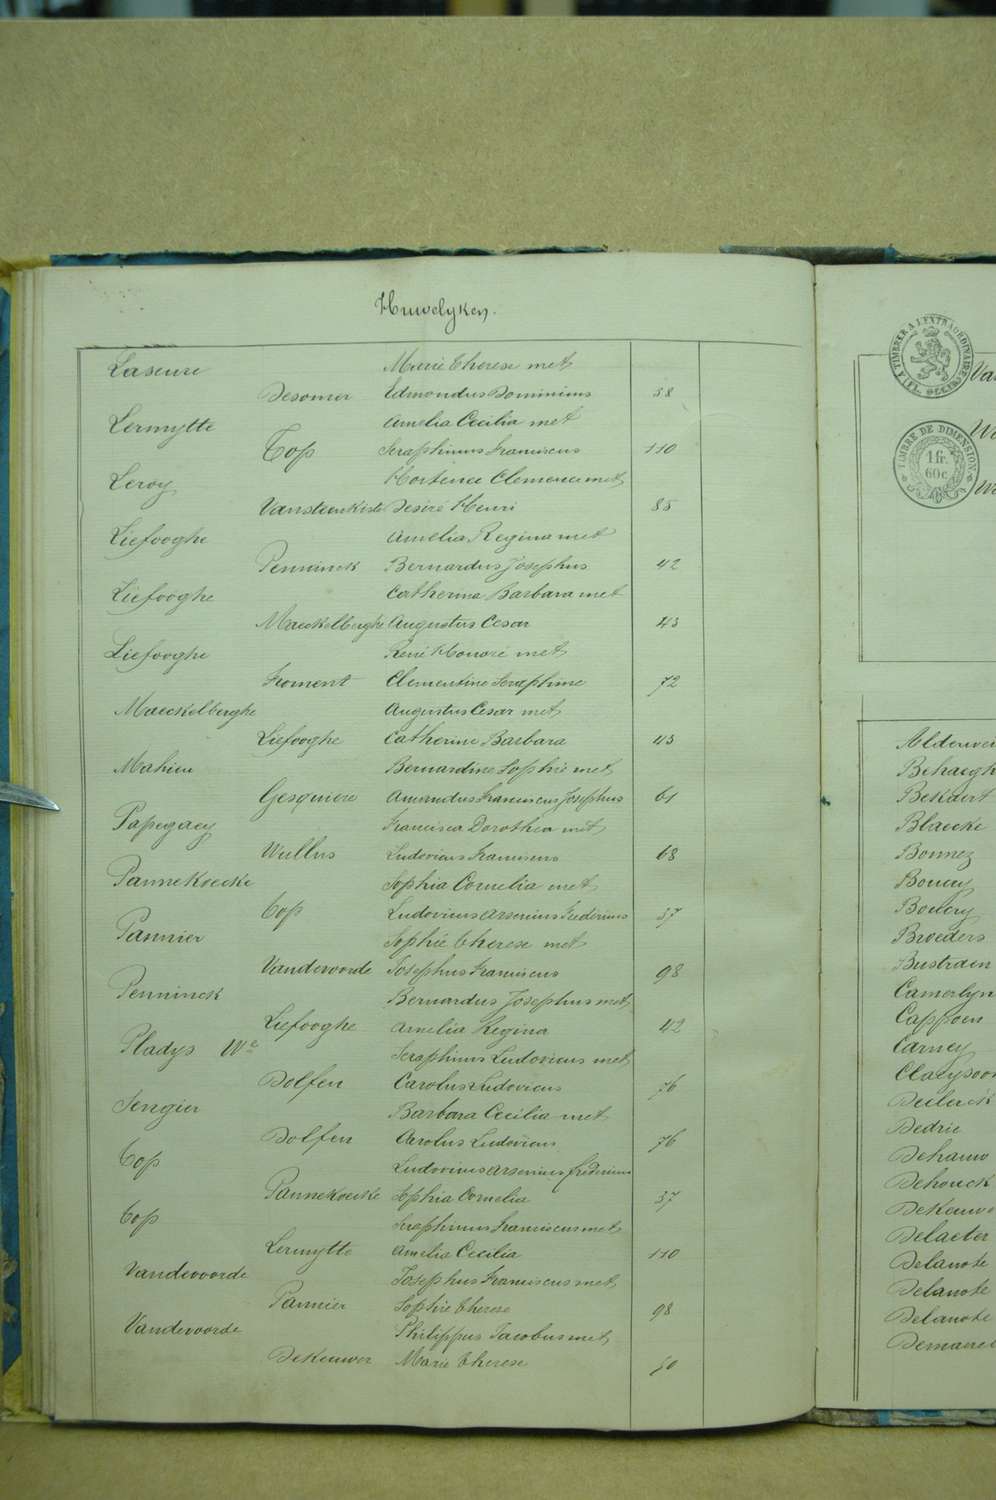 Huwelyken.
Laseure Marie Therese met
Desomer Edmondus Dominicus 58
Lermytte Amelia Cecilia met
Top Seraphinus Franciscus 110
Leroy Hortence Clemence met
Vansteenkiste Desiré Henri 85
Liefooghe Amelia Regina met
Penninck Bernardus Josephus 42
Liefooghe Catherina Barbara met
Maeckelberghe Augustus Cesar 43
Liefooghe René Honoré met
Froment Clementine Seraphine 72
Maeckelberghe Augustus Cesar met
Liefooghe Catherine Barbara 43
Mahieu Bernardine Sophie met
Gesquiere Amandus Franciscus Josephus 61
Papegaey Francisca Dorothea met
Wullus Ludovicus Franciscus 68
Pannekoecke Sophia Cornelia met
Top Ludovicus Arsenius Fredericus 37
Pannier Sophie Therese met
Vandevoorde Josephus Franciscus 98
Penninck Bernardus Josephus met
Liefooghe Amelia Regina 42
Pladys We Seraphinus Ludovicus met
Dolfen Carolus Ludovicus 76
Sengier Barbara Cecilia met
Dolfen Carolus Ludovicus 76
Top Ludovicus Arsenius fredericus
Pannekoecke Sophia Cornelia 37
Top Seraphinus Franciscus met
Lermytte Amelia Cecilia 110
Vandevoorde Josephus Franciscus met
Pannier Sophie Therese 98
Vandevoorde Philippus Jacobus met
Dekeuwer Marie Therese 50
A TIMBRER A L'EXTRAORDINAIRE
TIMBRE DE DIMENSION
1 fr.
60 c.
Va
Behaegh
Bekaert
Blaecke
Bonnez
Bouery
Broeders
Bustraen
Camerlyn
Cappoen
Carney
Claeysoon
Dedrie
Dehauw
Dehouck
Dekeuwe
Delaeter
Delanote
Delanote
Delanote